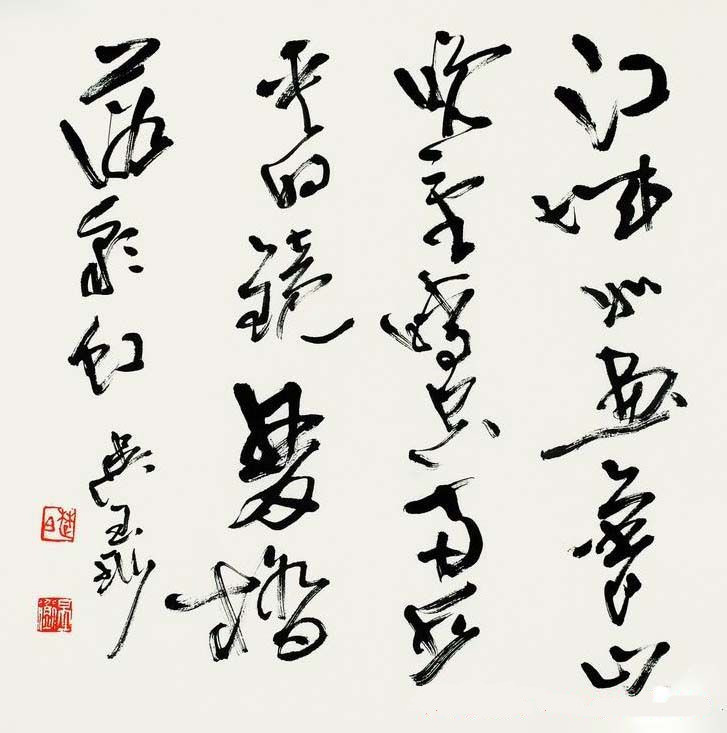 江城如畫裏山
晚望晴空兩水
夾明鏡雙橋
落彩虹 吳玉